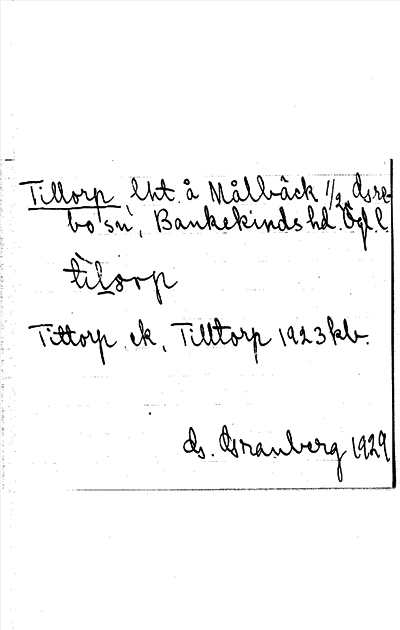 Tillorp, lht. å Målbäck 1/2, Gre-
bo sn, Bankekinds hd. Ögl.
tilorp
Tittorp ek, Tilltorp 1923 kb.
G. Granberg 1929